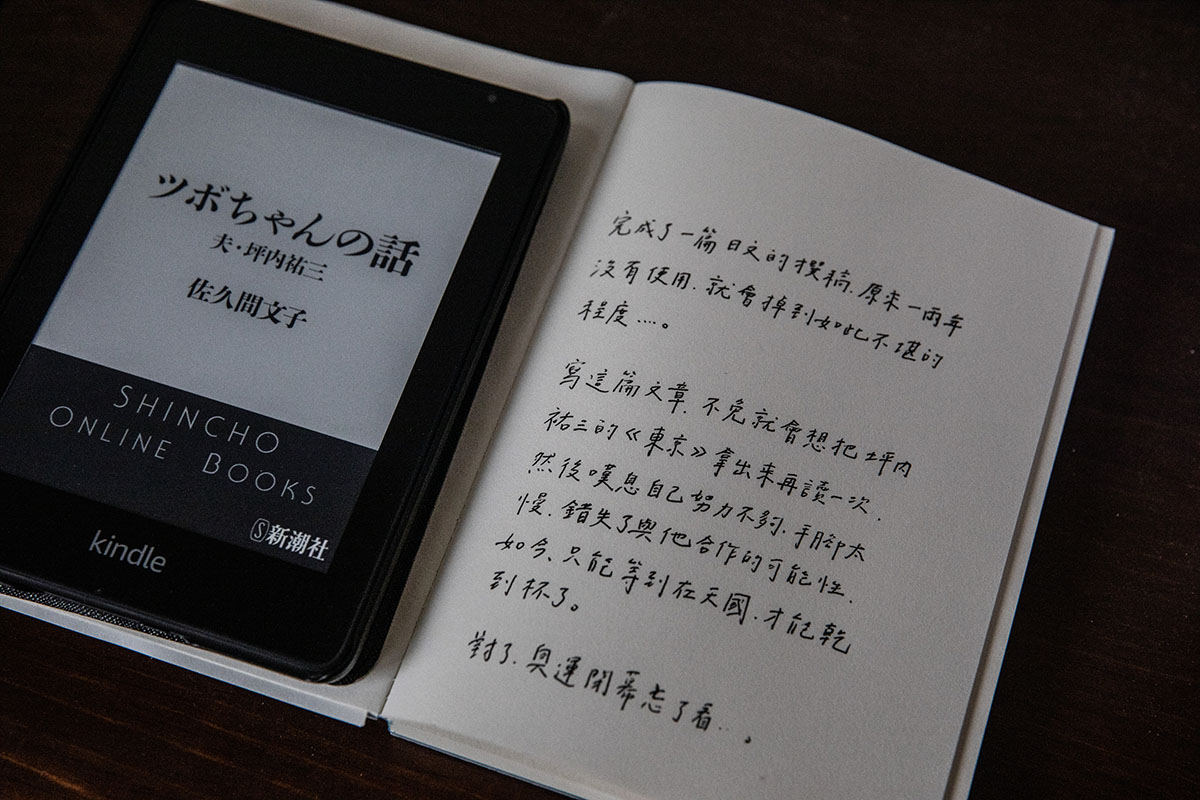 ツボちゃんの話
夫・坪内祐三
佐久間文子
SHINCHO
ONLINE BOOKS
新潮社
kindle
完成了一篇日文的撰稿、原來一兩年
沒有使用、就會掉到如此不堪的
程度....。
寫這篇文章、不免就會想把坪內
祐三的《東京》拿出來再讀一次、
然後嘆息自己努力不夠、手腳太
慢、錯失了與他合作的可能性、
如今、只能等到在天國、才能乾
到杯了。
對了、奧運閉幕忘了看...。